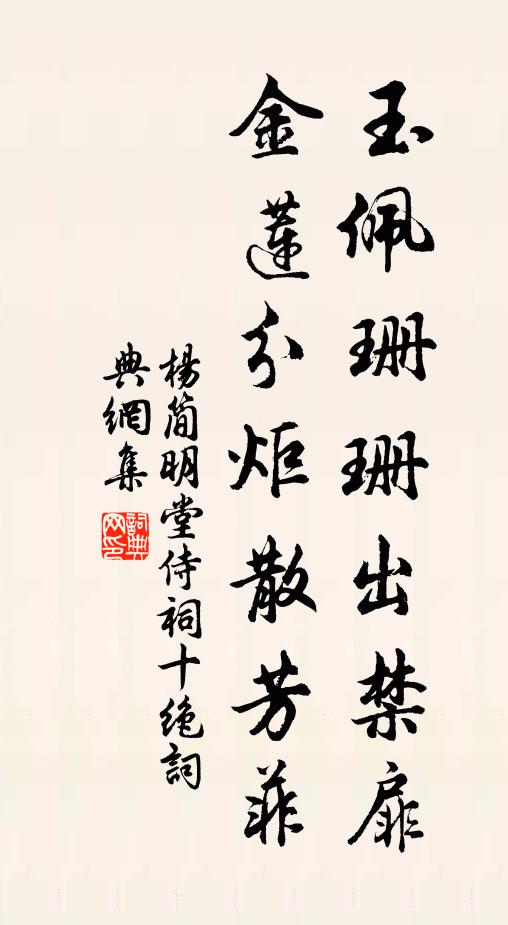 玉佩珊珊出禁扉
金蓮分炬散芳菲
楊簡明堂侍祠十絶詞
典網集
詞典網印